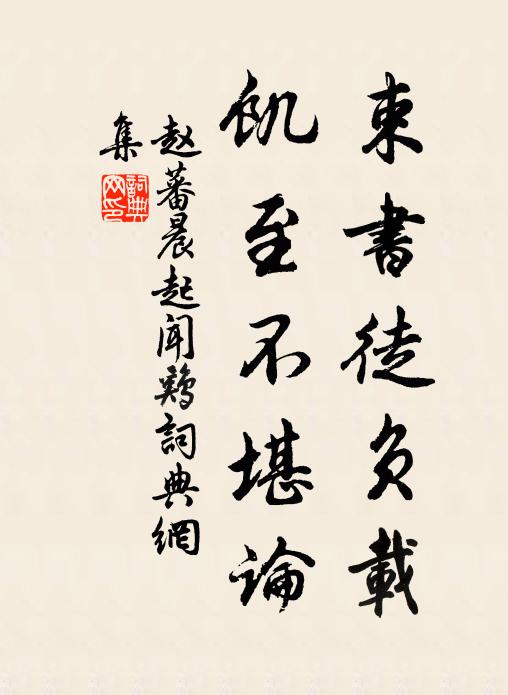 束書徒負載
飢至不堪論
赵蕃晨起闻鷄詞典網
集
詞典網印